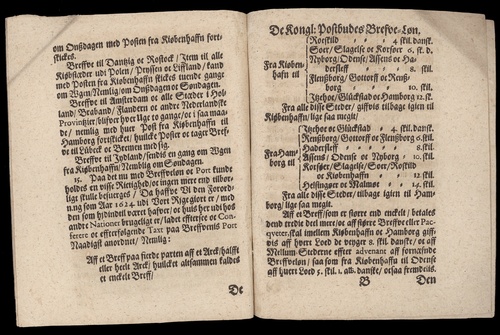 om Onßdagen med Posten fra Kiøbenhaffn fort-
stickes.
Breffve til Dantzig oc Rostock / Item til alle
Kiøbsteder udi Polen / Pryssen oc Liffland / kand
med Posten fra Kiøbenhaffn stickes tuende gange
om Vgen / Nemlig / om Onßdagen oc Søndagen.
Breffve til Amsterdam oc alle Steder i Hol-
land / Braband / Flandern oc andre Nederlandske
Provintzier, bliffver hver Vge to gange / oc i saa maa-
de / nemlig med huer Post fra Kiøbenhaffn til
Hamborg fortskicket / huilcke Poster oc tager Bref-
ve til Lübeck oc Bremen med sig.
Breffve til Jydland / sendis en gang om Vgen
fra Kiøbenhaffn / Nemblig om Søndagen.
15. Paa det nu med Breffveløn oc Port kunde
holdis en visse Rictighed / oc ingen mere end tilbør-
ligt skulle besuerges / Da haffve Vi den Forord-
ning som Aar 1624 udi Vort Rige giort er / med
den som hos hyndindel været haffver / oc huis hos
andre Nationer brugeligt er / ladet efftersee oc Con-
ferere oc effterfølgende Taxt paa Breffvenis Port
Naadigst anordnet / Nemlig:
Aff et Breff paa fierde parten aff et Arck / halfft
eller heelt Arck / huilcket altsammen kaldes
et enckelt Breff /
De
De Kongl: Postbudes Breffve-Løn.
Fra Kiøben-
hafn til
Roeskild 4 skil. danst.
Soer / Slagelse oc Korsøer 6. st. d.
Nyborg / Odense / Assens oc Ha-
dersleff 8. skil.
Flenßborg / Gottorff oc Rentz-
borg 10. skil.
Itzehoe / Glückstad oc Hamborg 12. st.
Fra alle disse Steder / giffvis tilbage igien til
Kiøbenhaffn / lige saa megit /
Fra Ham-
borg til
Itzehoe oc Glückstad 4. skil. danst.
Rentzborg / Gottorff oc Flenßborg 6. skil.
Hadersleff 8. skil.
Assens / Odense oc Nyborg 10. skil.
Korsøer / Slagelse / Soer / Roskild
oc Kiøbenhaffn 12. skil.
Helsingøer oc Malmøe 14. skil.
Fra alle disse Steder / tilbage igien til Ham-
borg / lige saa megit.
Aff et Breff / som er større end enckelt / betales
dend tredie deel mere / oc aff større Breffve eller Pac-
qveter, skal imellem Kiøbenhaffn oc Hamborg giff-
vis aff hvert Loed de vegger 8. skil. danske / oc aff
Mellum Stederne effter advenant aff forneffnde
Breffveløn / saa som fra Kiøbenhaffn til Odense
aff huert Loed 5. skil. 1. alb. danske / oc saa fremdeelis.
B
Den